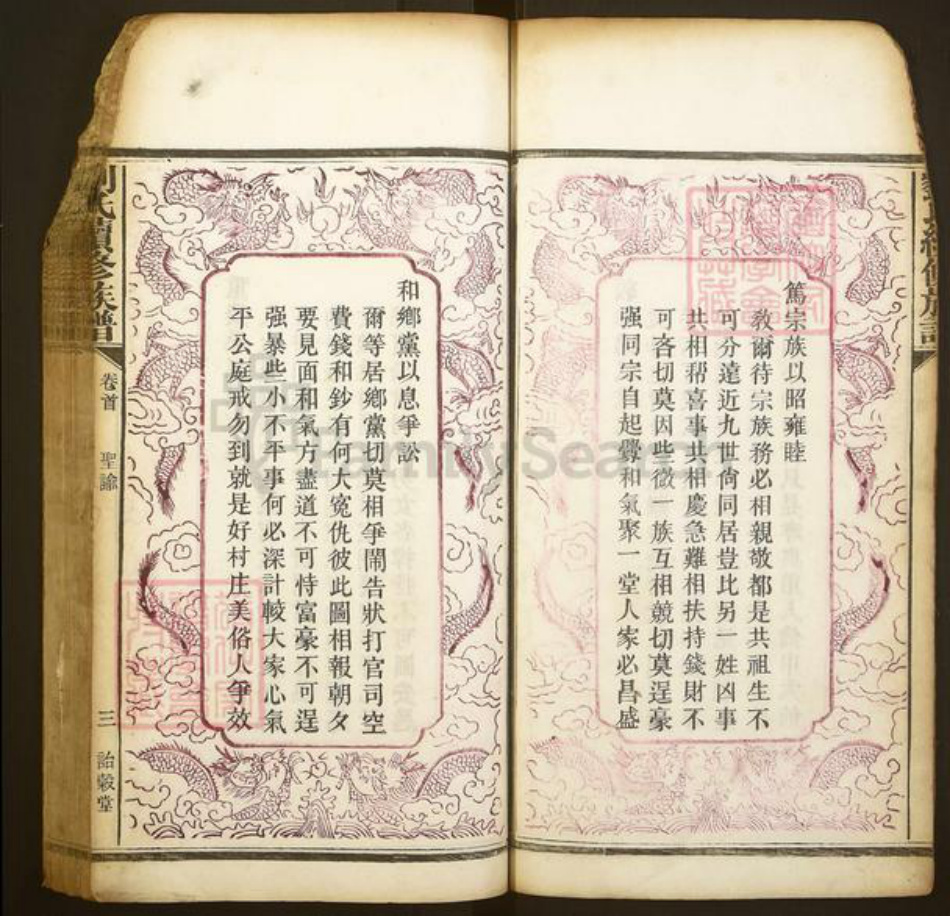 篤宗族以昭雍睦
教爾待宗族務必相親敬都是共祖生不
可分遠近九世尙同居豈比另一姓凶事
共相帮喜事共相慶急難相扶持錢財不
可吝切莫因些微一族互相競切莫逞豪
强同宗自起釁和氣聚一堂人家必昌盛
和鄉黨以息爭訟
爾等居鄉黨切莫相爭鬧告狀打官司空
費錢和鈔有何大寃仇彼此圖相報朝夕
要見面和氣方盡道不可恃富豪不可逞
强暴些小不平事何必深計較大家心氣
平公庭戒勿到就是好村庄美俗人爭效
氏續修族譜
卷首
聖諭
三
詒穀堂
FamilySearch